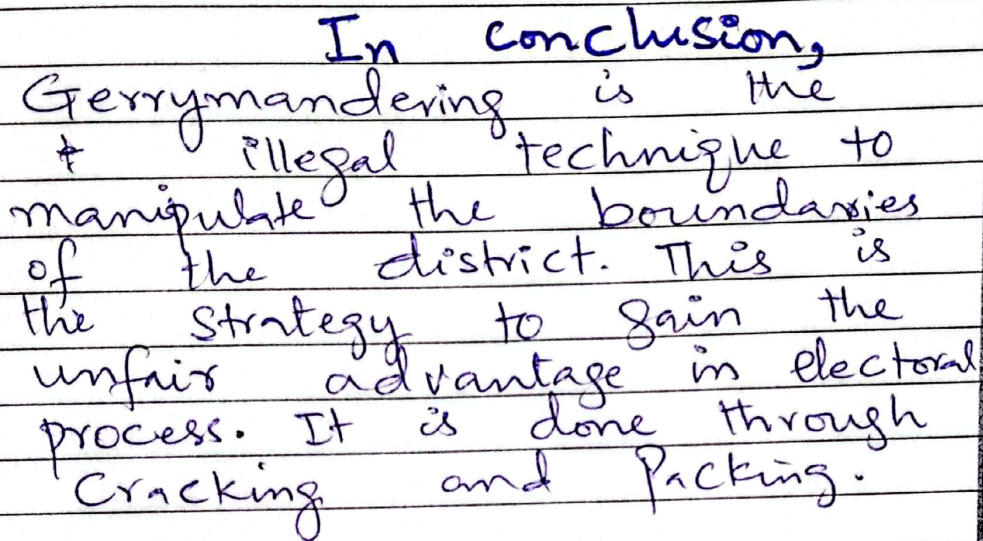 In conclusion,
Gerrymandering is the
illegal technique to
manipulate the boundaries
of the district. This is
the strategy to gain the
unfair advantage in electoral
process. It is done through
Cracking and Packing.